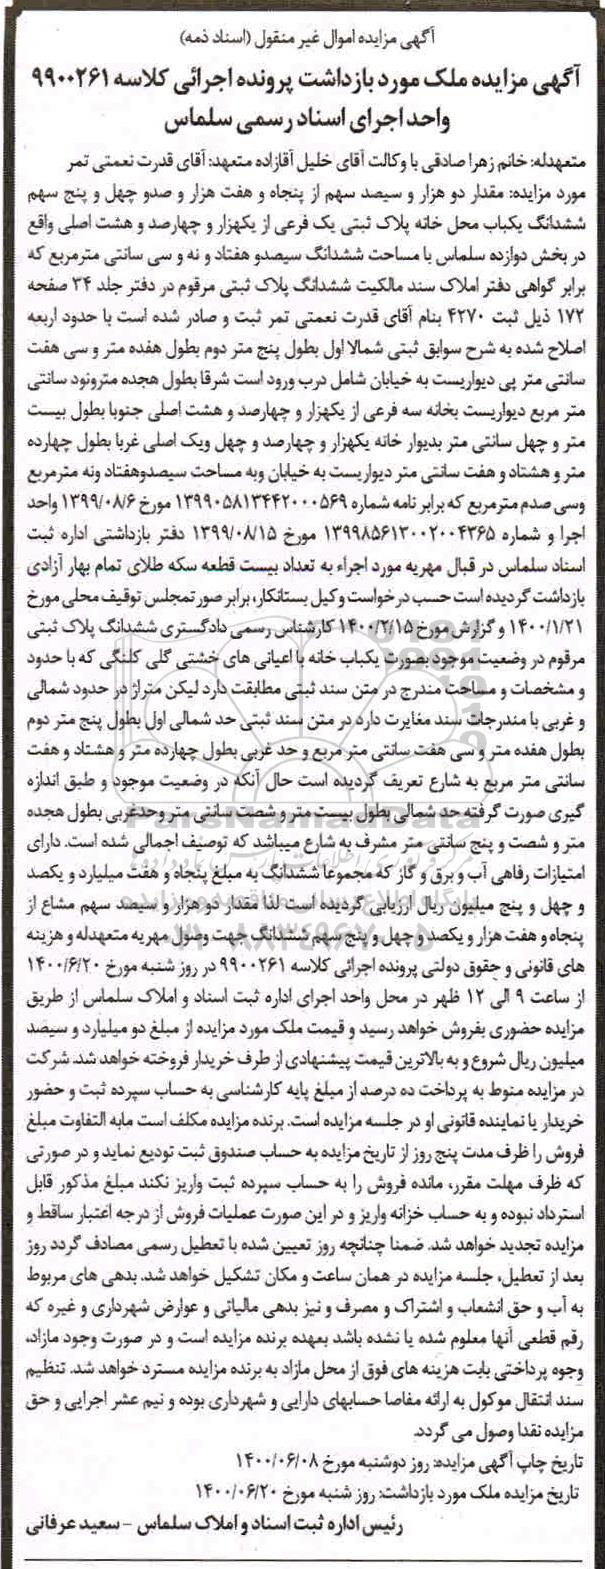 آگهی مزایده اموال غیر منقول (اسناد ذمه)
آگهی مزایده ملک مورد بازداشت پرونده اجرائی کلاسه ۹۹۰۰۲۶۱
واحد اجرای اسناد رسمی سلماس
متعهدله: خانم زهرا صادقی با وکالت آقای خلیل آقازاده متعهد: آقای قدرت نعمتی تمر
مورد مزایده: مقدار دو هزار و سیصد سهم از پنجاه و هفت هزار و صدو چهل و پنج سهم
ششدانگ یکباب محل خانه پلاک ثبتی یک فرعی از یکهزار و چهارصد و هشت اصلی واقع
در بخش دوازده سلماس با مساحت ششدانگ سیصدو هفتاد و نه و سی سانتی مترمربع که
برابر گواهی دفتر املاک سند مالکیت ششدانگ پلاک ثبتی مرقوم در دفتر جلد ۳۴ صفحه
۱۷۲ ذیل ثبت ۴۲۷۰ بنام آقای قدرت نعمتی تمر ثبت و صادر شده است با حدود اربعه
اصلاح شده به شرح سوابق ثبتی شمالا اول بطول پنج متر دوم بطول هفده متر و سی هفت
سانتی متر پی دیواریست به خیابان شامل درب ورود است شرقا بطول هجده مترونود سانتی
متر مربع دیواریست بخانه سه فرعی از یکهزار و چهارصد و هشت اصلی جنوبا بطول بیست
متر و چهل سانتی متر بدیوار خانه یکهزار و چهارصد و چهل ویک اصلی غربا بطول چهارده
متر و هشتاد و هفت سانتی متر دیواریست به خیابان وبه مساحت سیصدوهفتاد ونه مترمربع
وسی صدم مترمربع که برابر نامه شماره ۱۳۹۹۰۵۸۱۳۴۴۲۰۰۰۵۶۹ مورخ ۱۳۹۹/۰۸/۶ واحد
اجرا و شماره ۱۳۹۹۸۵۶۱۳۰۰۲۰۰۴۳۶۵ مورخ ۱۳۹۹/۰۸/۱۵ دفتر بازداشتی اداره ثبت
اسناد سلماس در قبال مهریه مورد اجراء به تعداد بیست قطعه سکه طلای تمام بهار آزادی
بازداشت گردیده است حسب درخواست وکیل بستانکار، برابر صورتمجلس توقیف محلی مورخ
۱۴۰۰/۱/۲۱ و گزارش مورخ ۱۴۰۰/۲/۱۵ کارشناس رسمی دادگستری ششدانگ پلاک ثبتی
مرقوم در وضعیت موجود بصورت یکباب خانه با اعیانی های خشتی گلی کلنگی که با حدود
و مشخصات و مساحت مندرج در متن سند ثبتی مطابقت دارد لیکن متراژ در حدود شمالی
و غربی با مندرجات سند مغایرت دارد در متن سند ثبتی حد شمالی اول بطول پنج متر دوم
بطول هفده متر و سی هفت سانتی متر مربع و حد غربی بطول چهارده متر و هشتاد و هفت
سانتی متر مربع به شارع تعریف گردیده است حال آنکه در وضعیت موجود و طبق اندازه
گیری صورت گرفته حد شمالی بطول بیست متر و شصت سانتی متر وحدغربی بطول هجده
متر و شصت و پنج سانتی متر مشرف به شارع میباشد که توصیف اجمالی شده است. دارای
امتیازات رفاهی آب و برق و گاز که مجموعا ششدانگ به مبلغ پنجاه و هفت میلیارد و یکصد
و چهل و پنج میلیون ریال ارزیابی گردیده است لذا مقدار دو هزار و سیصد سهم مشاع از
پنجاه و هفت هزار و یکصد و چهل و پنج سهم ششدانگ جهت وصول مهریه متعهدله و هزینه
های قانونی و حقوق دولتی پرونده اجرائی کلاسه ۹۹۰۰۲۶۱ در روز شنبه مورخ ۱۴۰۰/۶/۲۰
از ساعت ۹ الی ۱۲ ظهر در محل واحد اجرای اداره ثبت اسناد و املاک سلماس از طریق
مزایده حضوری بفروش خواهد رسید و قیمت ملک مورد مزایده از مبلغ دو میلیارد و سیصد
میلیون ریال شروع و به بالاترین قیمت پیشنهادی از طرف خریدار فروخته خواهد شد. شرکت
در مزایده منوط به پرداخت ده درصد از مبلغ پایه کارشناسی به حساب سپرده ثبت و حضور
خریدار یا نماینده قانونی او در جلسه مزایده است. برنده مزایده مکلف است مابه التفاوت مبلغ
فروش را ظرف مدت پنج روز از تاریخ مزایده به حساب صندوق ثبت تودیع نماید و در صورتی
که ظرف مهلت مقرر، مانده فروش را به حساب سپرده ثبت واریز نکند مبلغ مذکور قابل
استرداد نبوده و به حساب خزانه واریز و در این صورت عملیات فروش از درجه اعتبار ساقط و
مزایده تجدید خواهد شد. ضمنا چنانچه روز تعیین شده با تعطیل رسمی مصادف گردد روز
بعد از تعطیل، جلسه مزایده در همان ساعت و مکان تشکیل خواهد شد. بدهی های مربوط
به آب و حق انشعاب و اشتراک و مصرف و نیز بدهی مالیاتی و عوارض شهرداری و غیره که
رقم قطعی آنها معلوم شده یا نشده باشد بعهده برنده مزایده است و در صورت وجود مازاد،
وجوه پرداختی بابت هزینه های فوق از محل مازاد به برنده مزایده مسترد خواهد شد. تنظیم
سند انتقال موکول به ارائه مفاصا حسابهای دارایی و شهرداری بوده و نیم عشر اجرایی و حق
مزایده نقدا وصول می گردد.
تاریخ چاپ آگهی مزایده: روز دوشنبه مورخ ۱۴۰۰/۰۶/۰۸
تاریخ مزایده ملک مورد بازداشت: روز شنبه مورخ ۱۴۰۰/۰۶/۲۰
رئیس اداره ثبت اسناد و املاک سلماس - سعید عرفانی
ParsNamadData